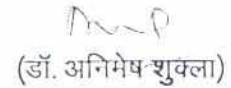 (डॉ. अनिमेष शुक्ला)